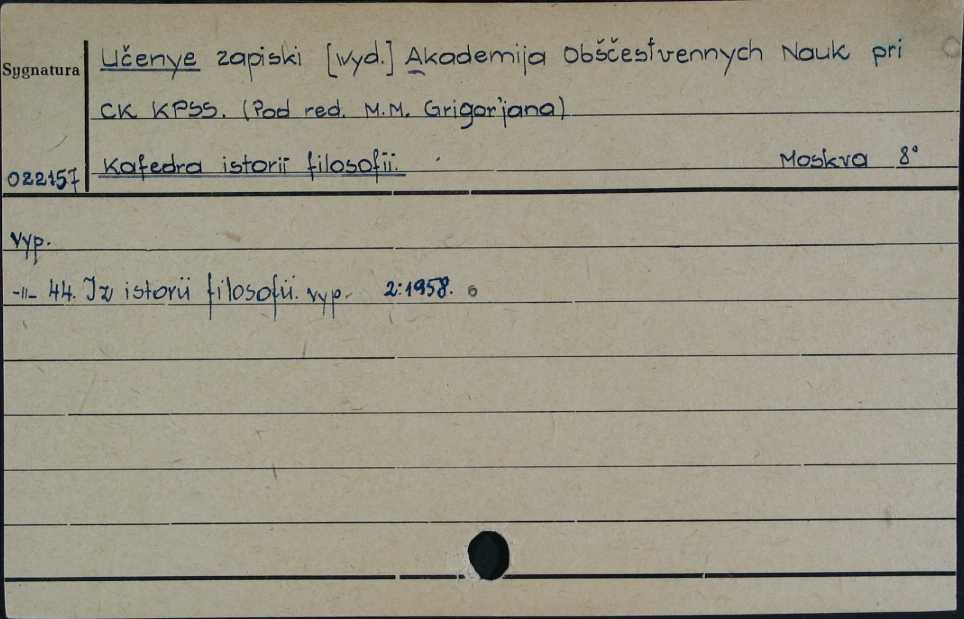 Učenye zapiski [wyd.] Akademija Obščestvennych Nauk pri
Sygnatura
CK KPSS. (Pod red. M.M. Grigor'jana)
022157
Kafedra istorii filosofii. Moskva 8°
vyp.
-"- 44. Iz istorii filosofii. vyp. 2:1958.